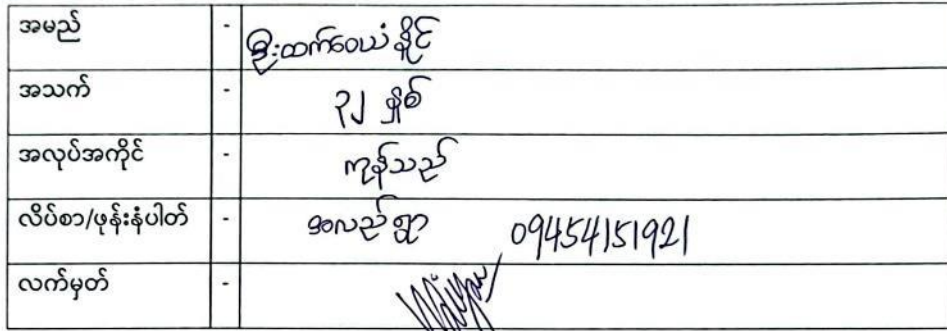 အမည် - ဦးထက်ဝေယံနိုင်
အသက် - ၃၂ နှစ်
အလုပ်အကိုင် - ကုန်သည်
လိပ်စာ/ဖုန်းနံပါတ် - အလည်ရွာ 09454151921
လက်မှတ် -